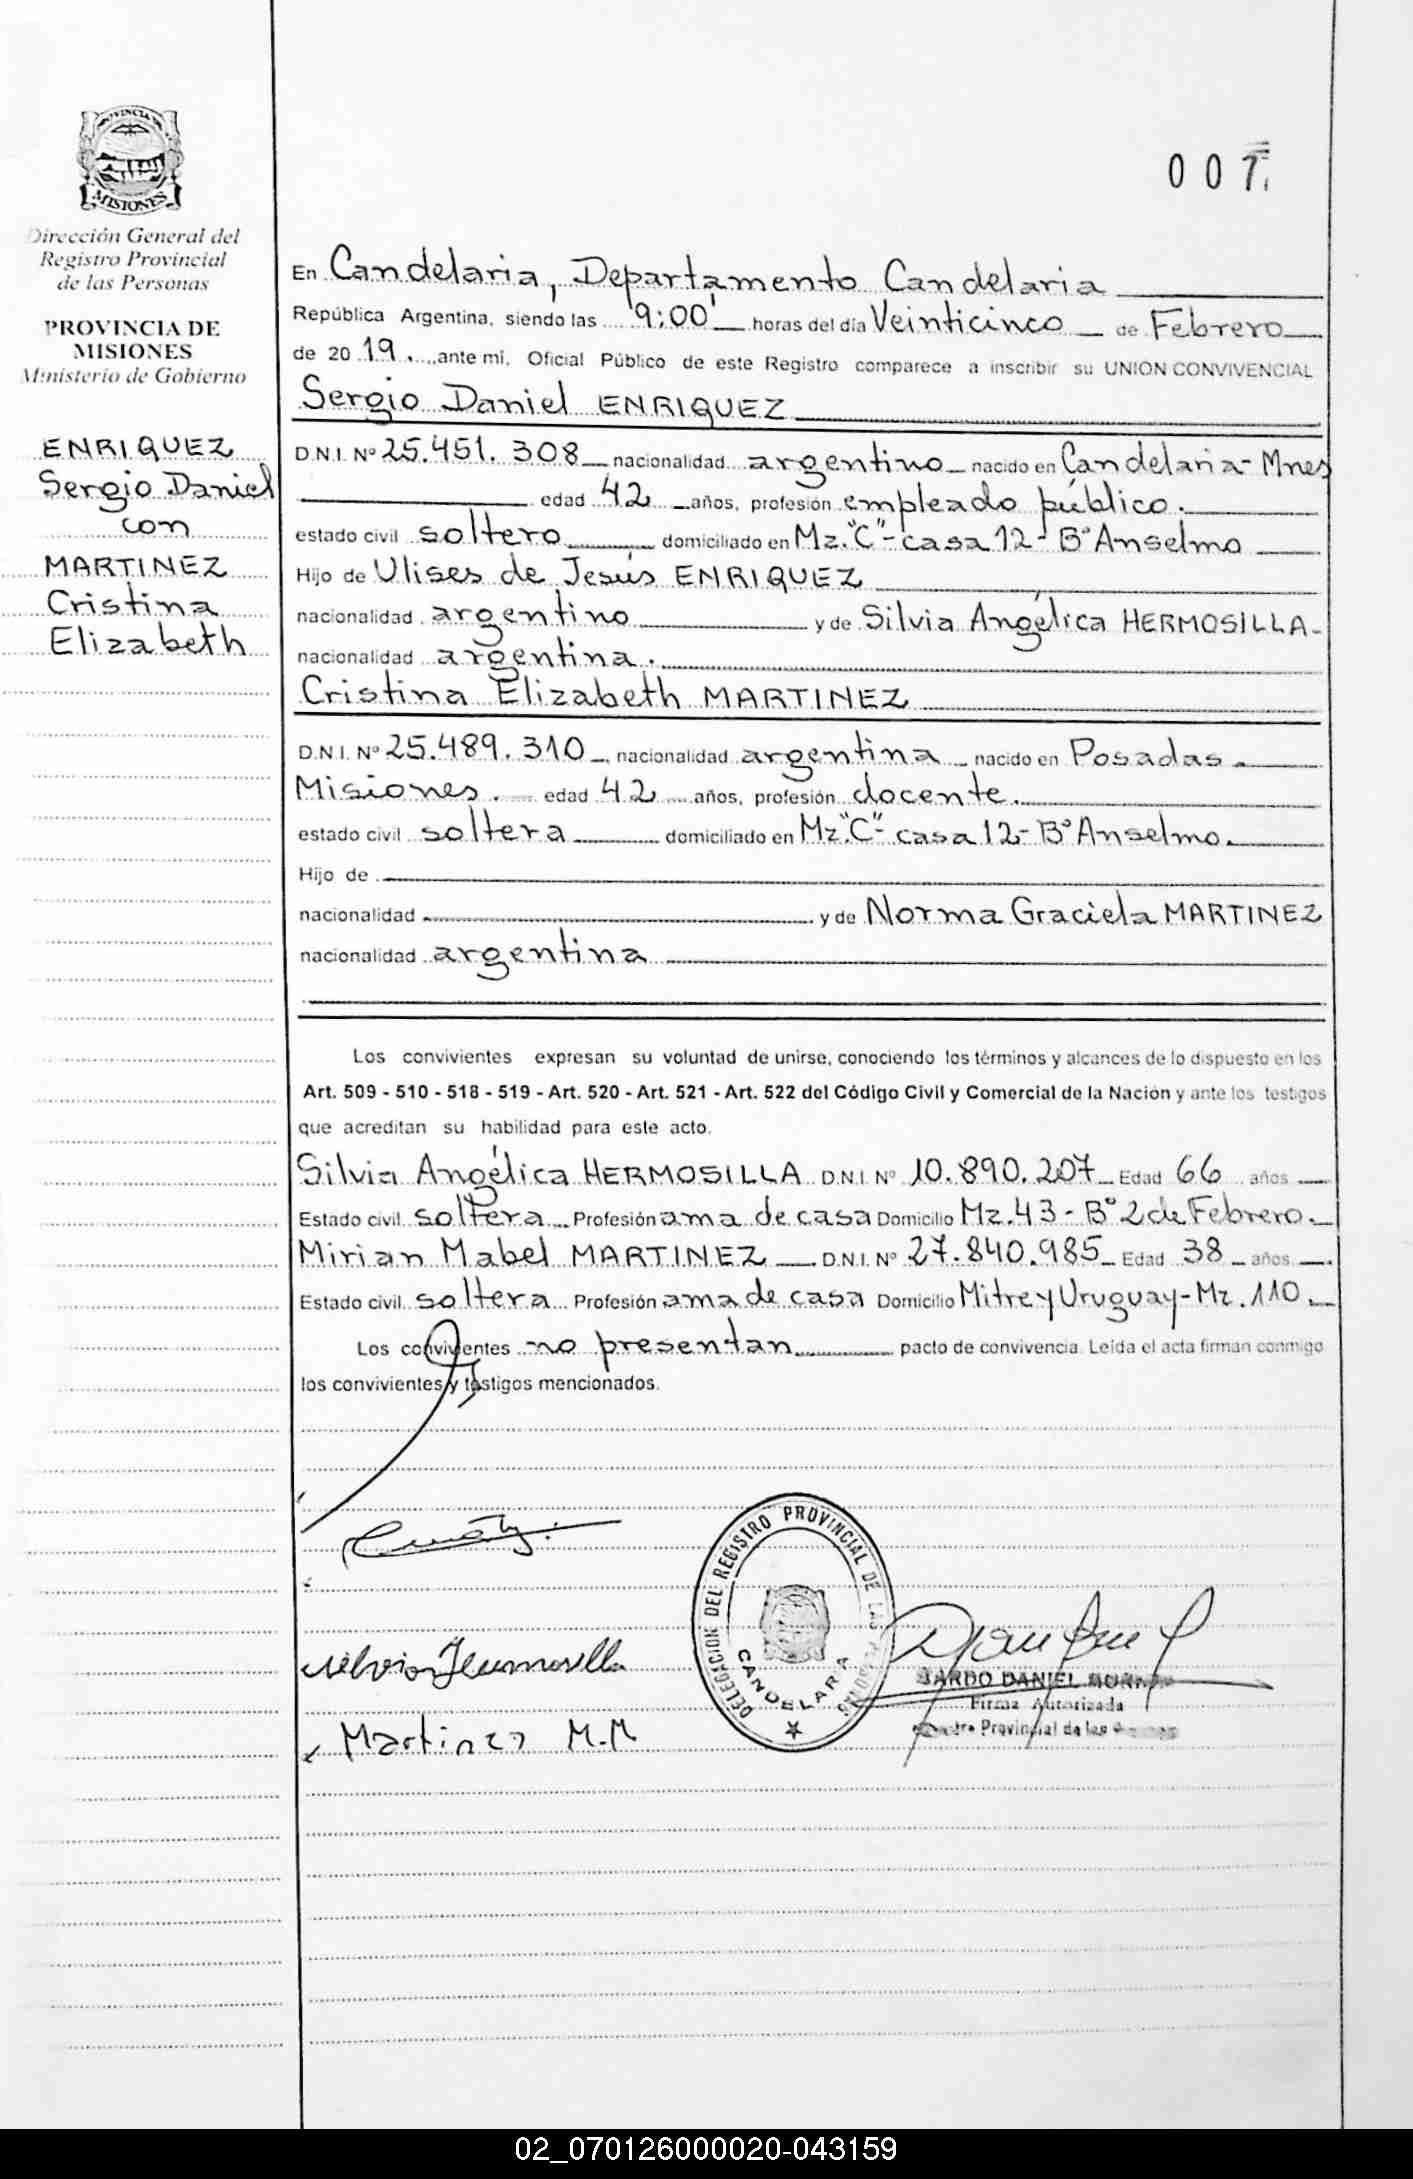 PROVINCIA DE
MISIONES
Dirección General del
Registro Provincial
de las Personas
PROVINCIA DE
MISIONES
Ministerio de Gobierno
ENRIQUEZ
Sergio Daniel
con
MARTINEZ
Cristina
Elizabeth
007
En Candelaria, Departamento Candelaria
República Argentina, siendo las 9:00' horas del día Veinticinco de Febrero
de 2019. ante mi, Oficial Público de este Registro comparece a inscribir su UNION CONVIVENCIAL
Sergio Daniel ENRIQUEZ
D.N.I. Nº 25.451.308 nacionalidad argentino nacido en Candelaria - Mnes
edad 42 años, profesión empleado público.
estado civil soltero domiciliado en Mz. "C" - casa 12 - Bº Anselmo
Hijo de Ulises de Jesús ENRIQUEZ
nacionalidad argentino y de Silvia Angélica HERMOSILLA -
nacionalidad argentina.
Cristina Elizabeth MARTINEZ
D.N.I. Nº 25.489.310 nacionalidad argentina nacido en Posadas -
Misiones. edad 42 años, profesión docente.
estado civil soltera domiciliado en Mz. "C" - casa 12 - Bº Anselmo.
Hijo de
nacionalidad y de Norma Graciela MARTINEZ
nacionalidad argentina
Los convivientes expresan su voluntad de unirse, conociendo los términos y alcances de lo dispuesto en los
Art. 509 - 510 - 518 - 519 - Art. 520 - Art. 521 - Art. 522 del Código Civil y Comercial de la Nación y ante los testigos
que acreditan su habilidad para este acto.
Silvia Angélica HERMOSILLA D.N.I. Nº 10.890.207 Edad 66 años
Estado civil soltera Profesión ama de casa Domicilio Mz. 43 - Bº 2 de Febrero.
Mirian Mabel MARTINEZ D.N.I. Nº 27.840.985 Edad 38 años
Estado civil soltera Profesión ama de casa Domicilio Mitre y Uruguay - Mz. 110.
Los convivientes no presentan pacto de convivencia. Leída el acta firman conmigo
los convivientes y testigos mencionados.
Silvia Hermosilla
Martinez M.M
DELEGACION DEL REGISTRO PROVINCIAL DE LAS PERSONAS
CANDELARIA
DANIEL
Firma Autorizada
Provincial de las
02_070126000020-043159